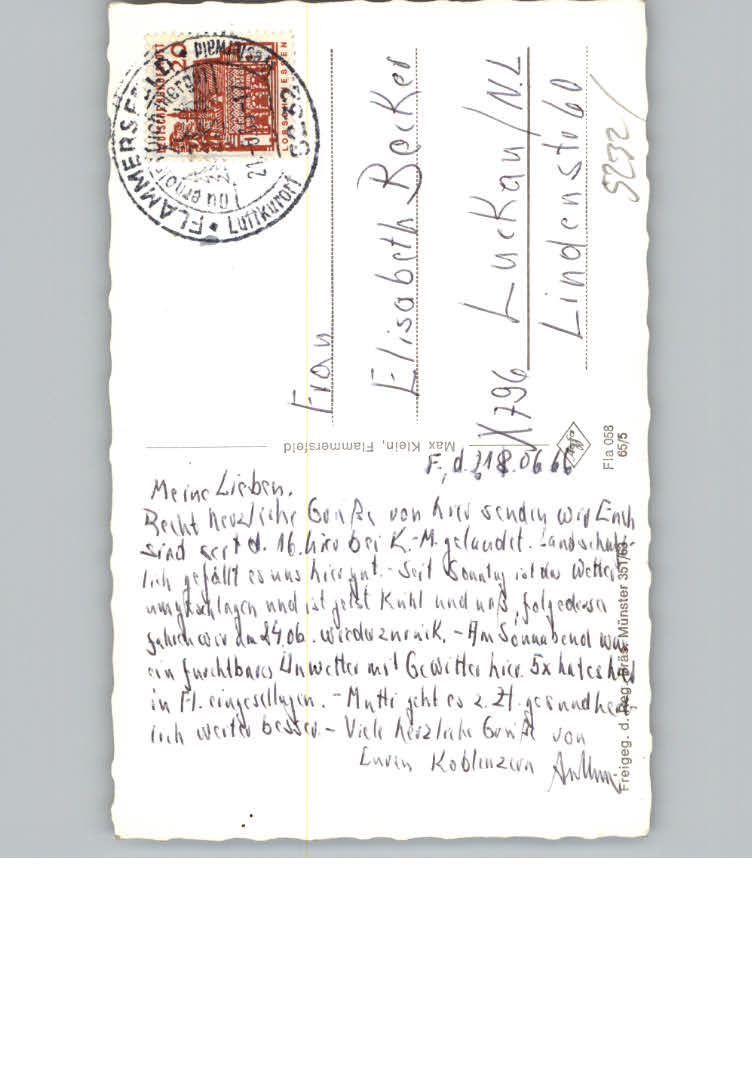 F., d. 21.06.66
Meine Lieben.
Recht herzliche Grüße von hier senden wir Euch
sind seit d. 16. hier bei K.-M. gelandet. Landschaft-
lich gefällt es uns hier gut. - Seit Sonntag ist das Wetter
umgeschlagen und ist jetzt Kühl und naß, folgedessen
fahren wir am 24.06. wieder zurück. - Am Sonnabend war
ein furchtbares Unwetter mit Gewitter hier. 5x hat es hier
in Fl. eingeschlagen. - Mutti geht es z. Zt. gesundheit-
lich weiter besser. - Viele herzliche Grüße von
Euren Koblenzern
Frau
Elisabeth Becker
X796 Luckau/N.L
Lindenstr 60
5232/
Max Klein, Flammersfeld
Agfa
Fla 058
65/5
Freigeg. d. Reg. Präs. Münster 351/63
DEUTSCHE BUNDESPOST
20
LORSCH HESSEN
FLAMMERSFELD
5232
Luftkurort
Westerwald